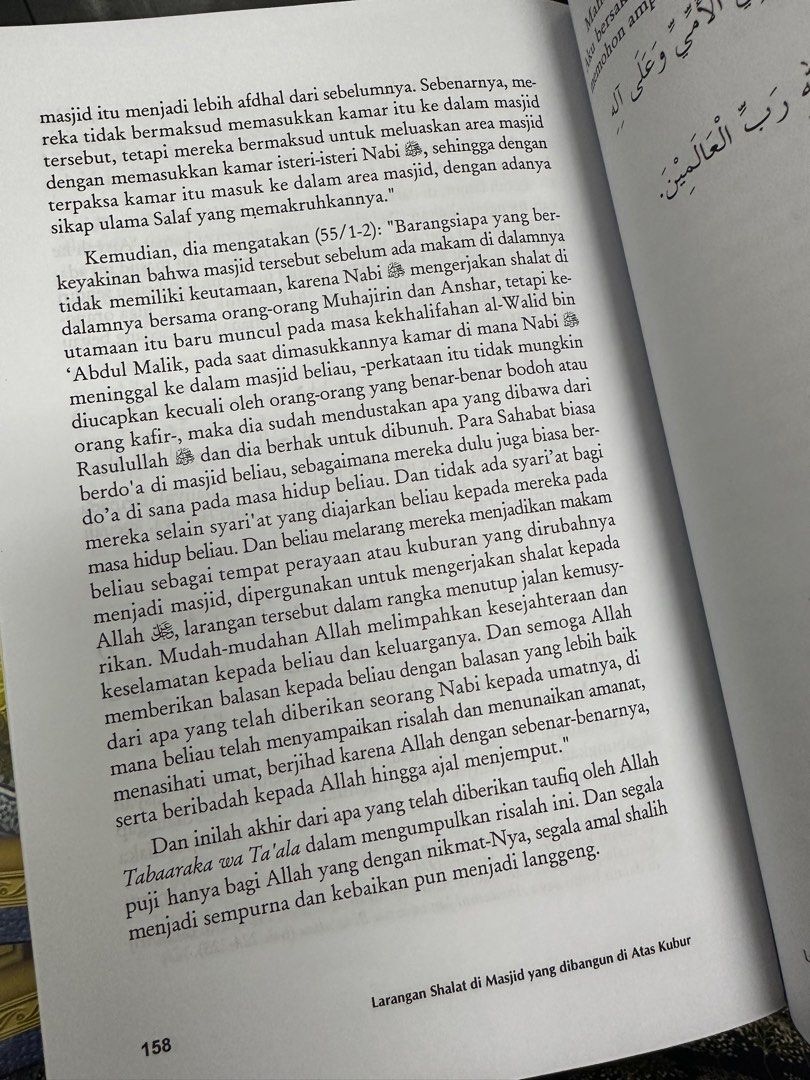 masjid itu menjadi lebih afdhal dari sebelumnya. Sebenarnya, me-
reka tidak bermaksud memasukkan kamar itu ke dalam masjid
tersebut, tetapi mereka bermaksud untuk meluaskan area masjid
dengan memasukkan kamar isteri-isteri Nabi ﷺ, sehingga dengan
terpaksa kamar itu masuk ke dalam area masjid, dengan adanya
sikap ulama Salaf yang memakruhkannya."
Kemudian, dia mengatakan (55/1-2): "Barangsiapa yang ber-
keyakinan bahwa masjid tersebut sebelum ada makam di dalamnya
tidak memiliki keutamaan, karena Nabi ﷺ mengerjakan shalat di
dalamnya bersama orang-orang Muhajirin dan Anshar, tetapi ke-
utamaan itu baru muncul pada masa kekhalifahan al-Walid bin
'Abdul Malik, pada saat dimasukkannya kamar di mana Nabi ﷺ
meninggal ke dalam masjid beliau, -perkataan itu tidak mungkin
diucapkan kecuali oleh orang-orang yang benar-benar bodoh atau
orang kafir-, maka dia sudah mendustakan apa yang dibawa dari
Rasulullah ﷺ dan dia berhak untuk dibunuh. Para Sahabat biasa
berdo'a di masjid beliau, sebagaimana mereka dulu juga biasa ber-
do'a di sana pada masa hidup beliau. Dan tidak ada syari'at bagi
mereka selain syari'at yang diajarkan beliau kepada mereka pada
masa hidup beliau. Dan beliau melarang mereka menjadikan makam
beliau sebagai tempat perayaan atau kuburan yang dirubahnya
menjadi masjid, dipergunakan untuk mengerjakan shalat kepada
Allah ﷻ, larangan tersebut dalam rangka menutup jalan kemusy-
rikan. Mudah-mudahan Allah melimpahkan kesejahteraan dan
keselamatan kepada beliau dan keluarganya. Dan semoga Allah
memberikan balasan kepada beliau dengan balasan yang lebih baik
dari apa yang telah diberikan seorang Nabi kepada umatnya, di
mana beliau telah menyampaikan risalah dan menunaikan amanat,
menasihati umat, berjihad karena Allah dengan sebenar-benarnya,
serta beribadah kepada Allah hingga ajal menjemput."
Dan inilah akhir dari apa yang telah diberikan taufiq oleh Allah
Tabaaraka wa Ta'ala dalam mengumpulkan risalah ini. Dan segala
puji hanya bagi Allah yang dengan nikmat-Nya, segala amal shalih
menjadi sempurna dan kebaikan pun menjadi langgeng.
Larangan Shalat di Masjid yang dibangun di Atas Kubur
158
memohon amp
الْأُمِّيِّ وَعَلَى آلِهِ
رَبِّ الْعَالَمِيْنَ.